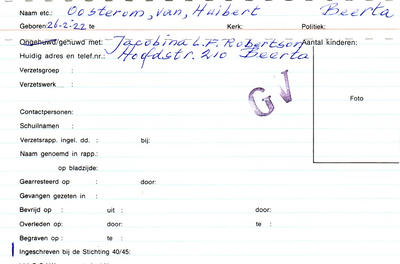 Naam etc.: Oosterom, van, Huibert Beerta
Geboren: 26-2-'22 te Kerk: Politiek:
Ongehuwd/gehuwd met: Jacobina L.F. Robertson Aantal kinderen:
Huidig adres en telef.nr.: Hoofdstr. 210 Beerta
Verzetsgroep :
Verzetswerk :
GV
Foto
Contactpersonen:
Schuilnamen :
Verzetsrapp. ingel. dd. : bij:
Naam genoemd in rapp.:
op bladzijde:
Gearresteerd op : door:
Gevangen gezeten in :
Bevrijd op : uit : door:
Overleden op: door: te :
Begraven op : te :
Ingeschreven bij de Stichting 40/45: